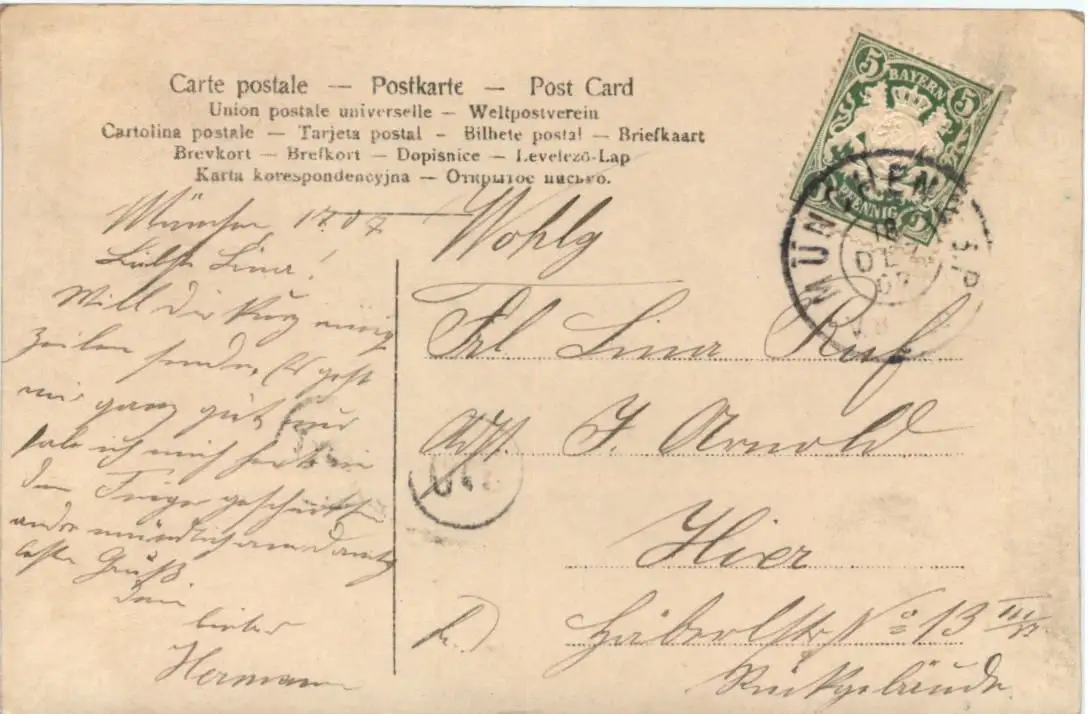 Carte postale — Postkarte — Post Card
Union postale universelle — Weltpostverein
Cartolina postale — Tarjeta postal — Bilhete postal — Briefkaart
Brevkort — Brefkort — Dopisnice — Levelező-Lap
Karta korespondencyjna — Открытое письмо.
5 BAYERN 5
PFENNIG
MÜNCHEN
18
07
München 17.07
Liebste Lina!
Will dir kurz einig
Zeilen senden, Es geht
mir ganz gut und
habe ich mich
geschnitten
mündlich
Gruß
Dein
lieber
Hermann
Wohlg
Frl. Lina Ruf
Adr. J. Arnold
Hier
Häberlstr No 13 III
Rückgebäude